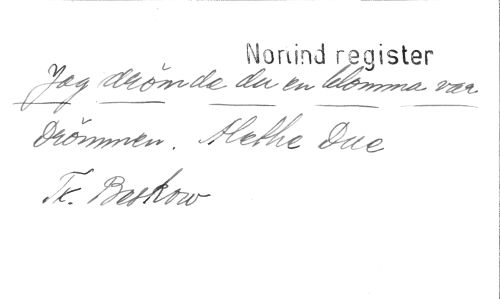 Norlind register
Jag drömde du en blomma var
Drömmen. Alethe Due
Tx. Beskow